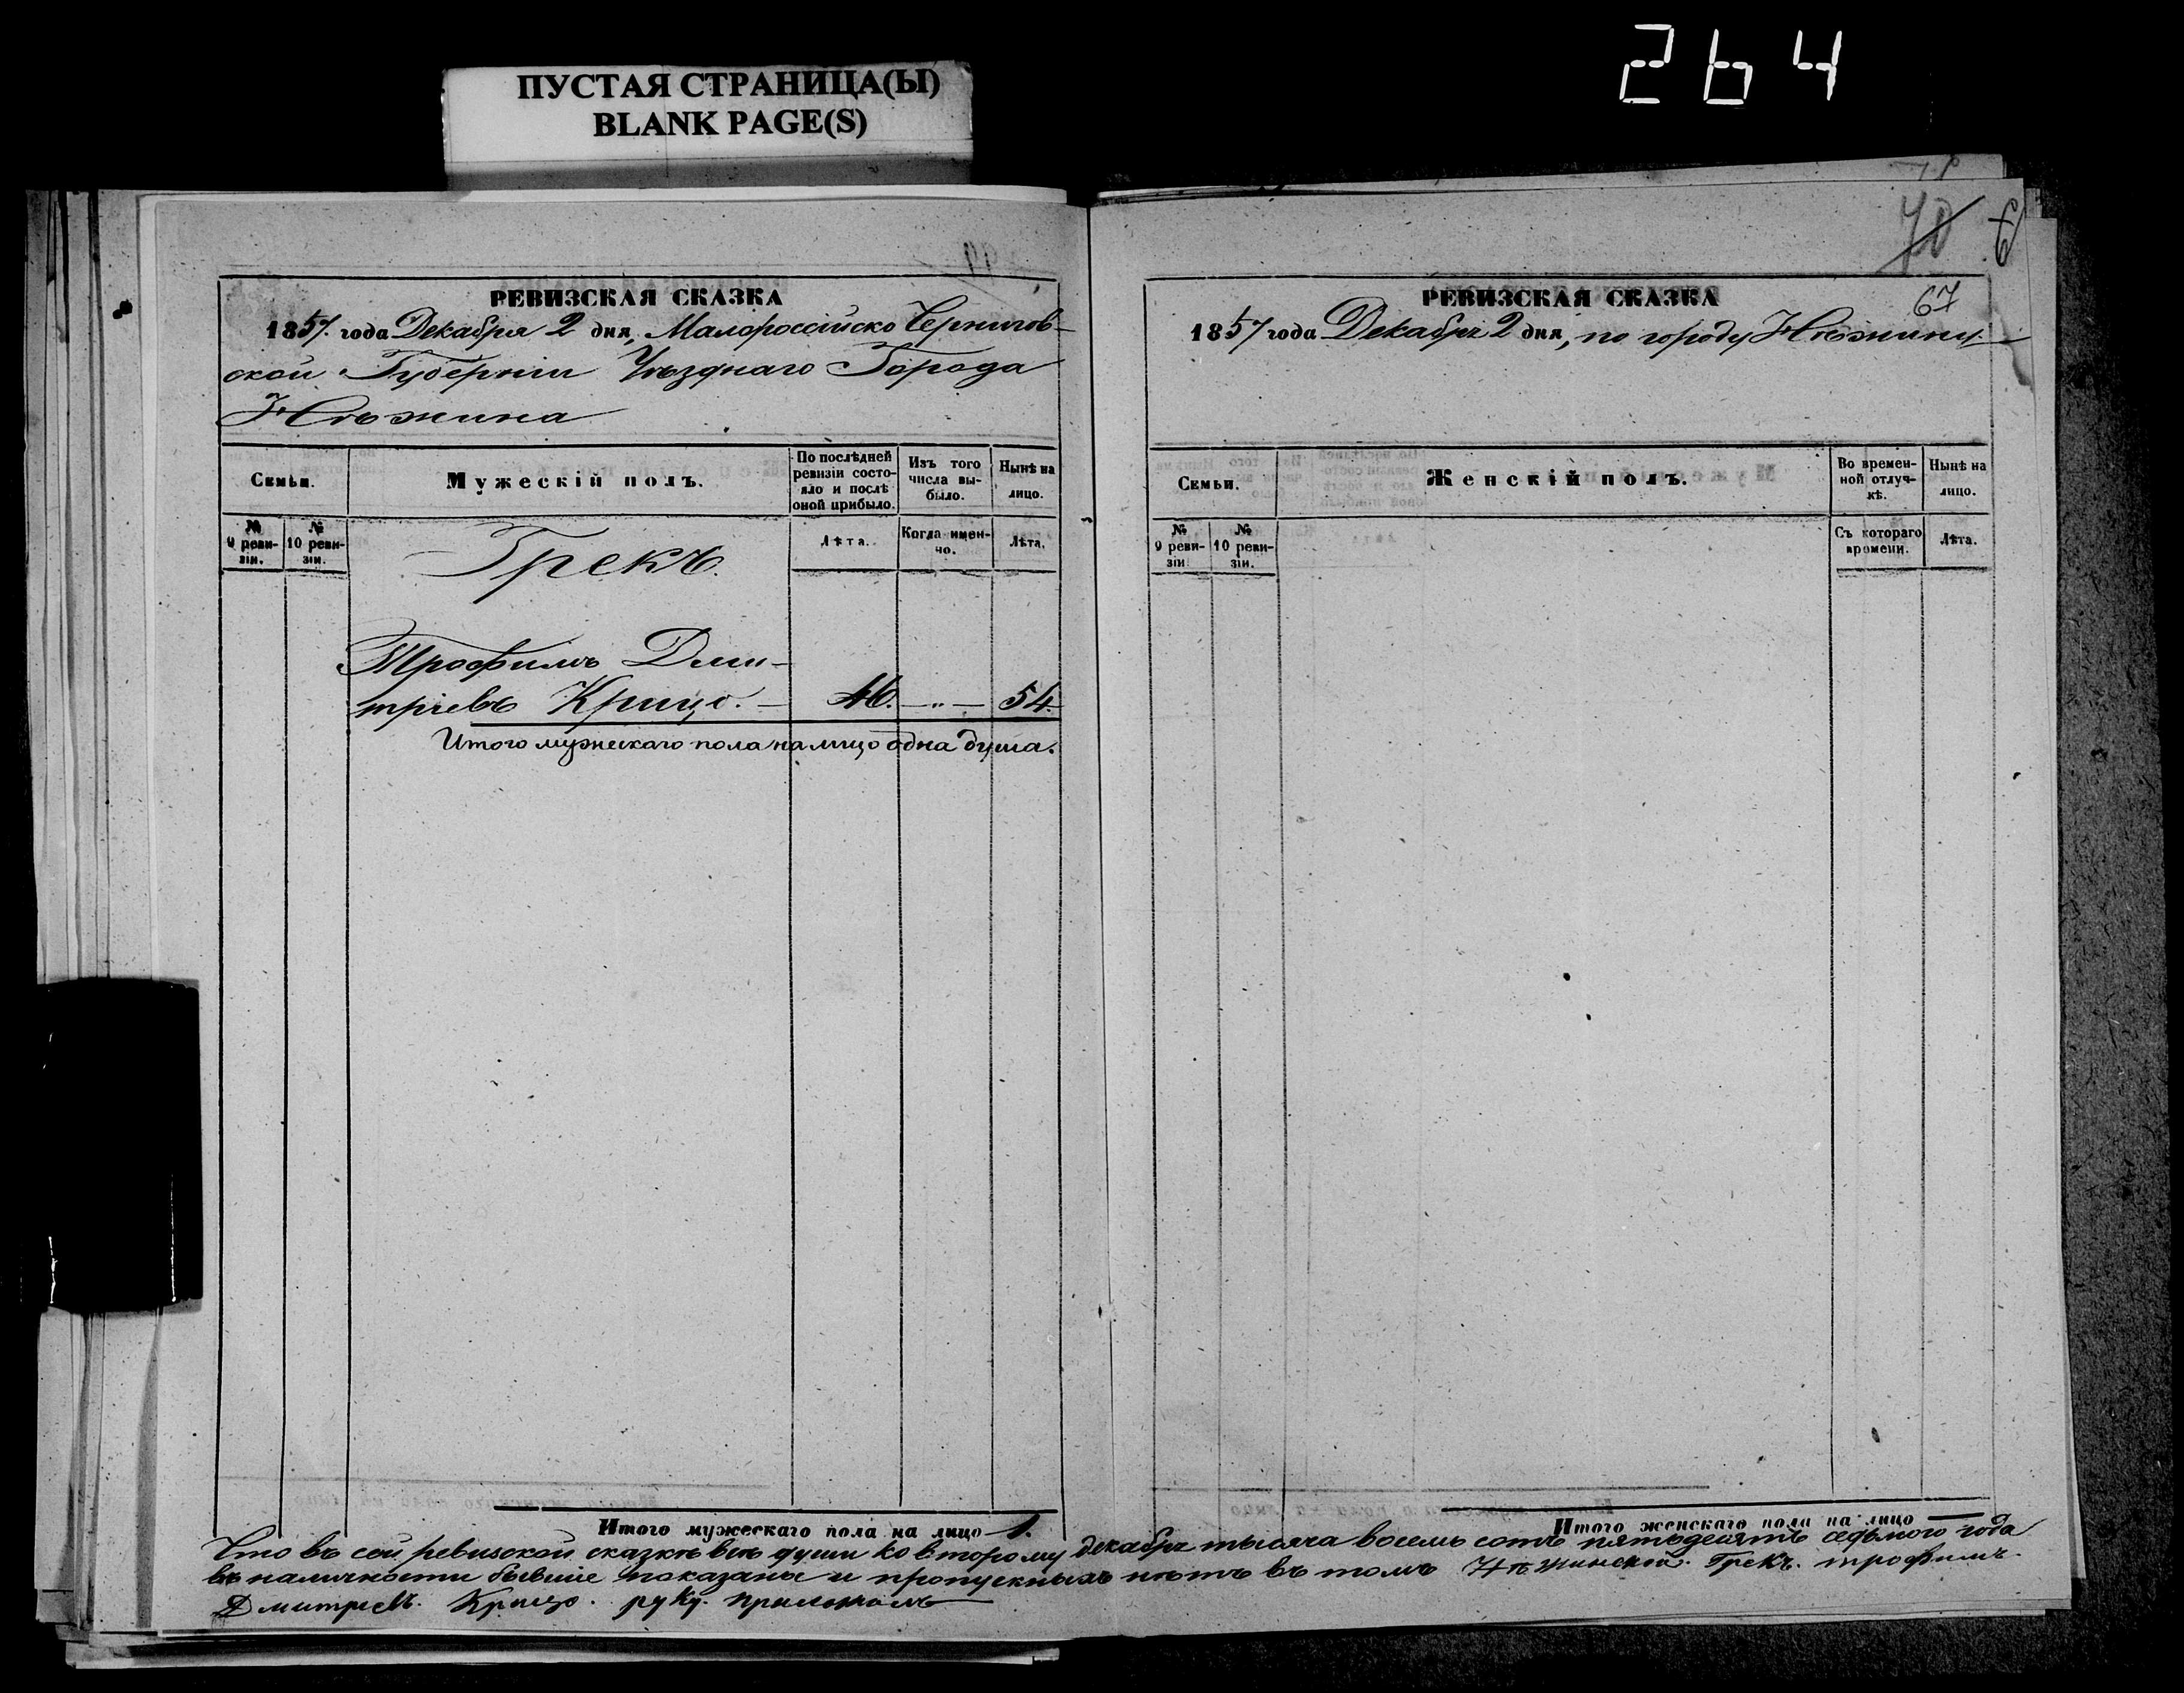 264
ПУСТАЯ СТРАНИЦА(Ы)
BLANK PAGE(S)
РЕВИЗСКАЯ СКАЗКА
1857. года Декабря 2 дня, Малороссійско Чернигов-
ской Губерніи Уѣзднаго Города
Нѣжина
Семьи.
Мужескій полъ.
По послѣдней ревизіи состояло и послѣ оной прибыло.
Изъ того числа выбыло.
Нынѣ на лицо.
№ 9 ревизіи.
№ 10 ревизіи.
Лѣта.
Когда именно.
Лѣта.
Грекъ.
Трофимъ Дми-
тріевъ Крицо. — 46. —"— 54.
Итого мужескаго пола на лицо одна душа.
Итого мужескаго пола на лицо 1.
70 67
РЕВИЗСКАЯ СКАЗКА
67
1857 года Декабря 2 дня, по городу Нѣжину.
Семьи.
Женскій полъ.
Во временной отлучкѣ.
Нынѣ на лицо.
№ 9 ревизіи
№ 10 ревизіи.
Съ котораго времени.
Лѣта.
Итого женскаго пола на лицо —
Что въ сей ревизской сказкѣ всѣ души ко второму декабря тысяча восемь сотъ пятьдесятъ седьмого года
въ наличности бывшіе показаны и пропускныхъ нѣтъ въ томъ Нѣжинской. Грекъ. трофимъ.
Дмитріевъ. Крицо. руку. приложилъ